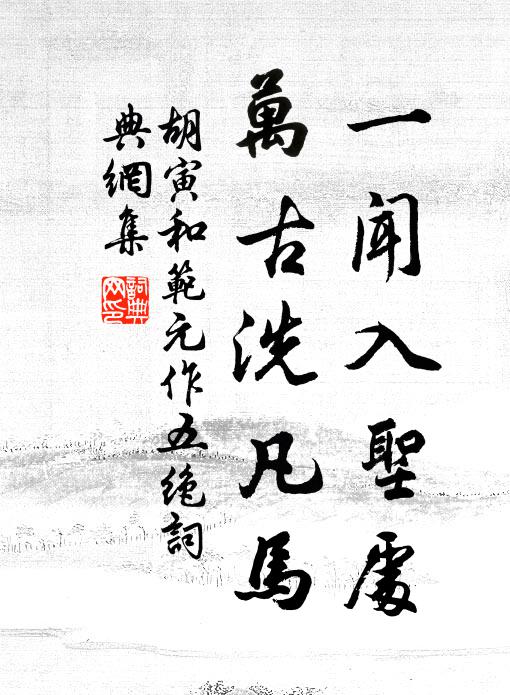 一聞入聖處
萬古洗凡馬
胡寅和範元作五絶詞
典網集
詞典網印